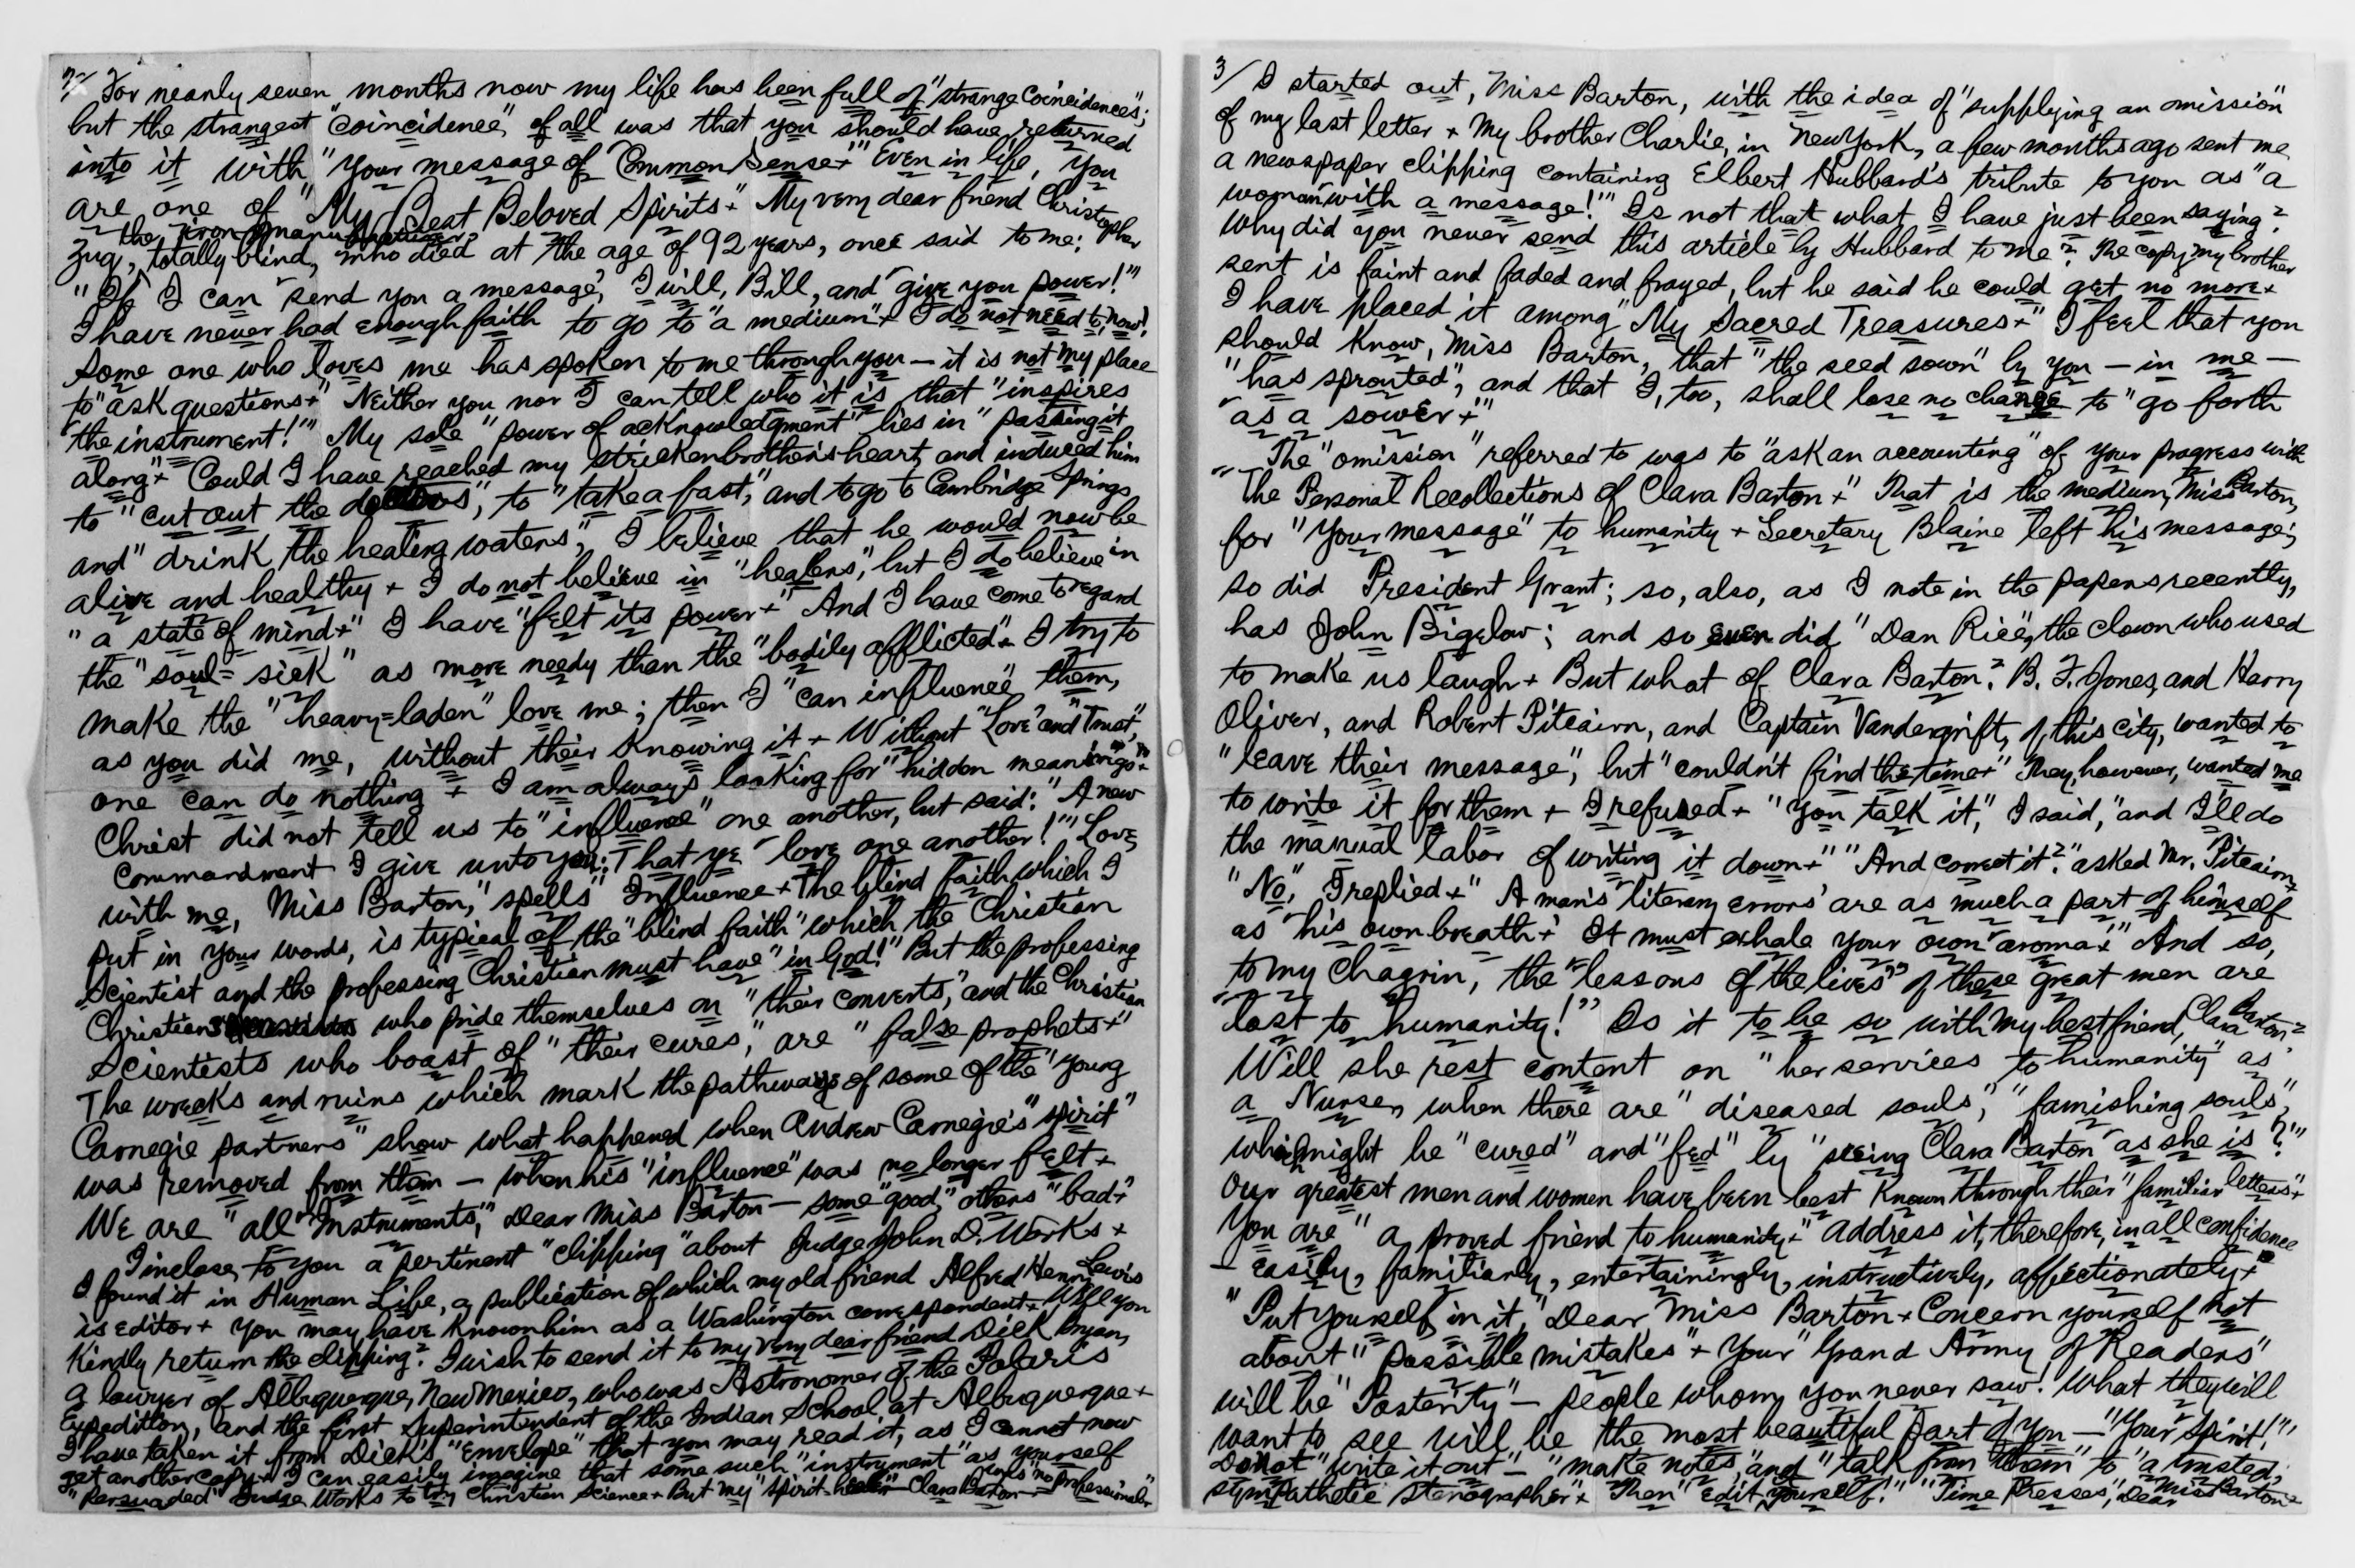 2/ For nearly seven months now my life has been full of "strange coincidences";
but the strangest "coincidence" of all was that you should have returned
into it with "your message of Common Sense+"' Even in life, you
are one of "My Best Beloved Spirits+" My very dear friend Christopher
the iron manufacturer,
Zug, totally blind, who died at the age of 92 years, once said to me:
"If I can 'send you a message', I will, Bill, and 'give you power!'"
I have never had enough faith to go to "a medium"+ I do not need to, now!
Some one who loves me has spoken to me through you — it is not my place
to "ask questions+" Neither you nor I can tell who it is that "inspires
"the instrument!"' My sole "power of acknowledgment" lies in "passing it
along"+ Could I have reached my stricken brother's heart, and induced him
to "cut out the doctors", to "take a fast," and to go to Cambridge Springs
and "drink the healing waters," I believe that he would now be
alive and healthy + I do not believe in "healers", but I do believe in
"a state of mind+" I have "felt its power+" And I have come to regard
the "soul=sick" as more needy than the "bodily afflicted"+ I try to
make the "heavy=laden" love me; then I "can influence" them,
as you did me, without their knowing it + Without "Love" and "Trust",
one can do nothing + I am always looking for "hidden meanings"+
Christ did not tell us to "influence" one another, but said: "A new
Commandment I give unto you: That ye 'love one another!'" Love,
with me, Miss Barton, "spells" Influence + The blind faith which I
put in your words, is typical of the "blind faith" which the Christian
Scientist and the professing Christian must have "in God!" But the professing
Christians who pride themselves on "their converts," and the Christian
Scientists who boast of "their cures," are "false prophets+"
The wrecks and ruins which mark the pathways of some of the "young
Carnegie partners" show what happened when Andrew Carnegie's "spirit"
was removed from them — when his "influence" was no longer felt +
We are "all Instruments," Dear Miss Barton — some "good," others "bad+"
I inclose to you a pertinent "clipping" about Judge John D. Works +
I found it in Human Life, a publication of which my old friend Alfred Henry Lewis
is editor + You may have known him as a Washington correspondent + Will you
kindly return the clipping? I wish to send it to my very dear friend Dick Bryan,
a lawyer of Albuquerque, New Mexico, who was Astronomer of the Polaris
Expedition, and the first Superintendent of the Indian School at Albuquerque +
I have taken it from Dick's "envelope" that you may read it, as I cannot now
get another copy + I can easily imagine that some such "instrument" as yourself
"persuaded" Judge Works to try Christian Science + But my "spirit healer" — Clara Barton — is "no professional"+
3/ I started out, Miss Barton, with the idea of "supplying an omission"
of my last letter + My brother Charlie, in New York, a few months ago sent me
a newspaper clipping containing Elbert Hubbard's tribute to you as "a
woman with a message!"' Is not that what I have just been saying?
Why did you never send this article by Hubbard to me? The copy my brother
sent is faint and faded and frayed, but he said he could get no more +
I have placed it among "My Sacred Treasures+" I feel that you
should know, Miss Barton, that "the seed sown" by you — in me —
"has sprouted", and that I, too, shall lose no chance to "go forth
as a sower+"
The "omission" referred to was to "ask an accounting" of your progress with
"The Personal Recollections of Clara Barton+" That is the medium, Miss Barton,
for "your message" to humanity + Secretary Blaine left his message;
so did President Grant; so, also, as I note in the papers recently,
has John Bigelow; and so even did "Dan Rice", the clown who used
to make us laugh + But what of Clara Barton? B. F. Jones, and Harry
Oliver, and Robert Pitcairn, and Captain Vandergrift, of this city, wanted to
"leave their message", but "couldn't find the time+" They, however, wanted me
to write it for them + I refused + "You talk it," I said, "and I'll do
the manual labor of writing it down+" "And correct it?" asked Mr. Pitcairn+
"No," I replied+ "A man's 'literary errors' are as much a part of himself
as his own breath + It must exhale your own 'aroma+'" And so,
to my chagrin, the "lessons of the lives" of these great men are
"lost to humanity!" Is it to be so with my best friend, Clara Barton?
Will she rest content on "her services to humanity" as
a Nurse, when there are "diseased souls," "famishing souls",
which might be "cured" and "fed" by "seeing Clara Barton as she is?"'
Our greatest men and women have been best known through their "familiar letters"+
You are "a proved friend to humanity+" Address it, therefore, in all confidence
— easily, familiarly, entertainingly, instructively, affectionately +
"Put yourself in it," Dear Miss Barton + Concern yourself not
about "possible mistakes" + Your "Grand Army of Readers"
will be "Posterity" — people whom you never saw! What they will
want to see will be the most beautiful part of you — "Your Spirit!"'
Do not "write it out" — "make notes," and "talk from them" to "a trusted,
sympathetic stenographer"+ Then "edit yourself!" "Time Presses", Dear Miss Barton+